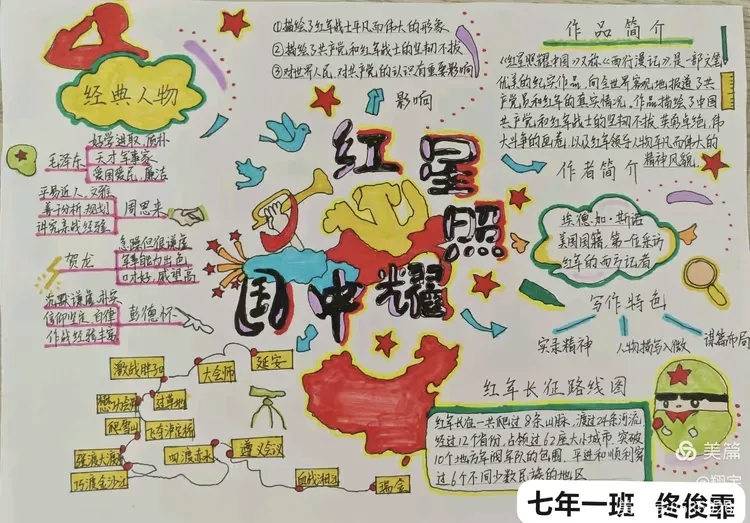 ①描绘了红军战士平凡而伟大的形象
②描绘了共产党和红军战士的坚韧不拔
③对世界人民,对共产党的认识有重要影响
影响
作品简介
《红星照耀中国》又称《西行漫记》是一部文笔
优美的纪实作品,向全世界客观地报道了共
产党员和红军的真实情况。作品描绘了中国
共产党和红军战士的坚韧不拔、英勇卓绝、伟
大斗争的画卷,以及红军领导人物平凡而伟大的
精神风貌
经典人物
毛泽东
好学进取、质朴
天才军事家
爱国爱民、廉洁
周恩来
平易近人、文雅
善于分析、规划
讲究实战经验
贺龙
急躁但很谦虚
军事能力出色
口才好、威望高
彭德怀
幽默谦虚、朴实
信仰坚定、自律
作战经验丰富
红星照
耀中国
作者简介
埃德加·斯诺
美国国籍,第一任采访
红军的西方记者
写作特色
实录精神
人物描写入微
谋篇布局
红军长征路线图
红军长征一共爬过8条山脉,渡过24条河流
经过12个省份,占领过62座大小城市,突破
10个地方军阀军队的包围,平进和顺利穿
过6个不同少数民族的地区
延安
大会师
激战腊子口
过草地
爬雪山
飞夺泸定桥
强渡大渡河
巧渡金沙江
四渡赤水
遵义会议
血战湘江
瑞金
美篇
七年一班 佟俊霏